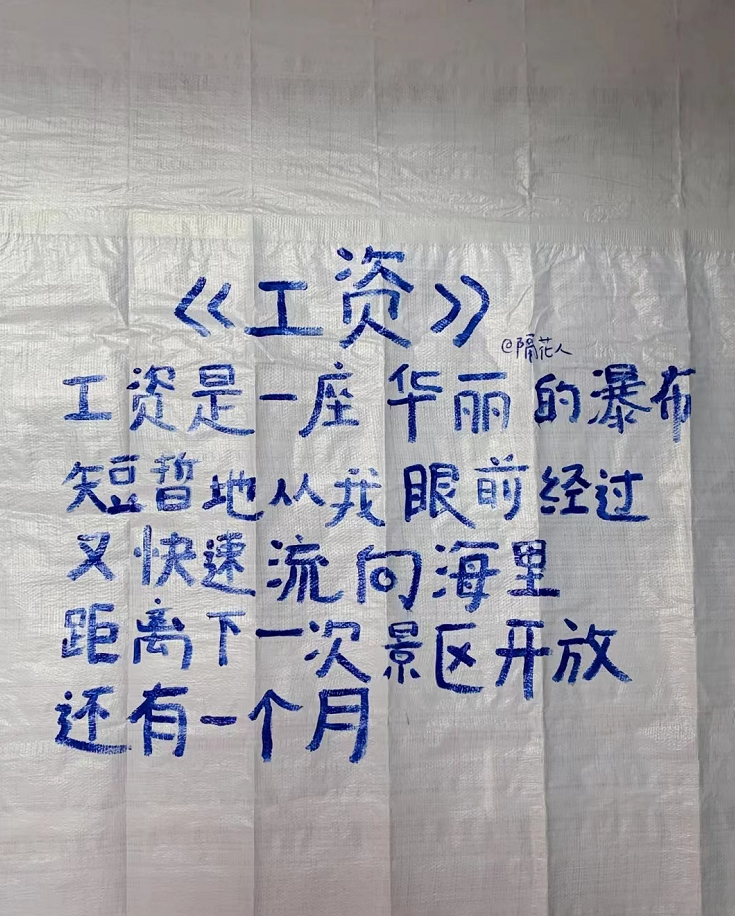 《工资》
@隔花人
工资是一座华丽的瀑布
短暂地从我眼前经过
又快速流向海里
距离下一次景区开放
还有一个月